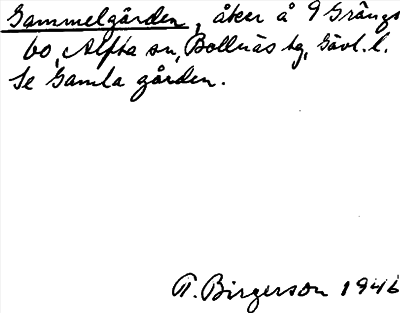 Gammelgården, åker å 9 Grängs
bo, Alfta sn, Bollnäs tg, Gävl. l.
Se Gamla gården.
T. Birgerson 1946